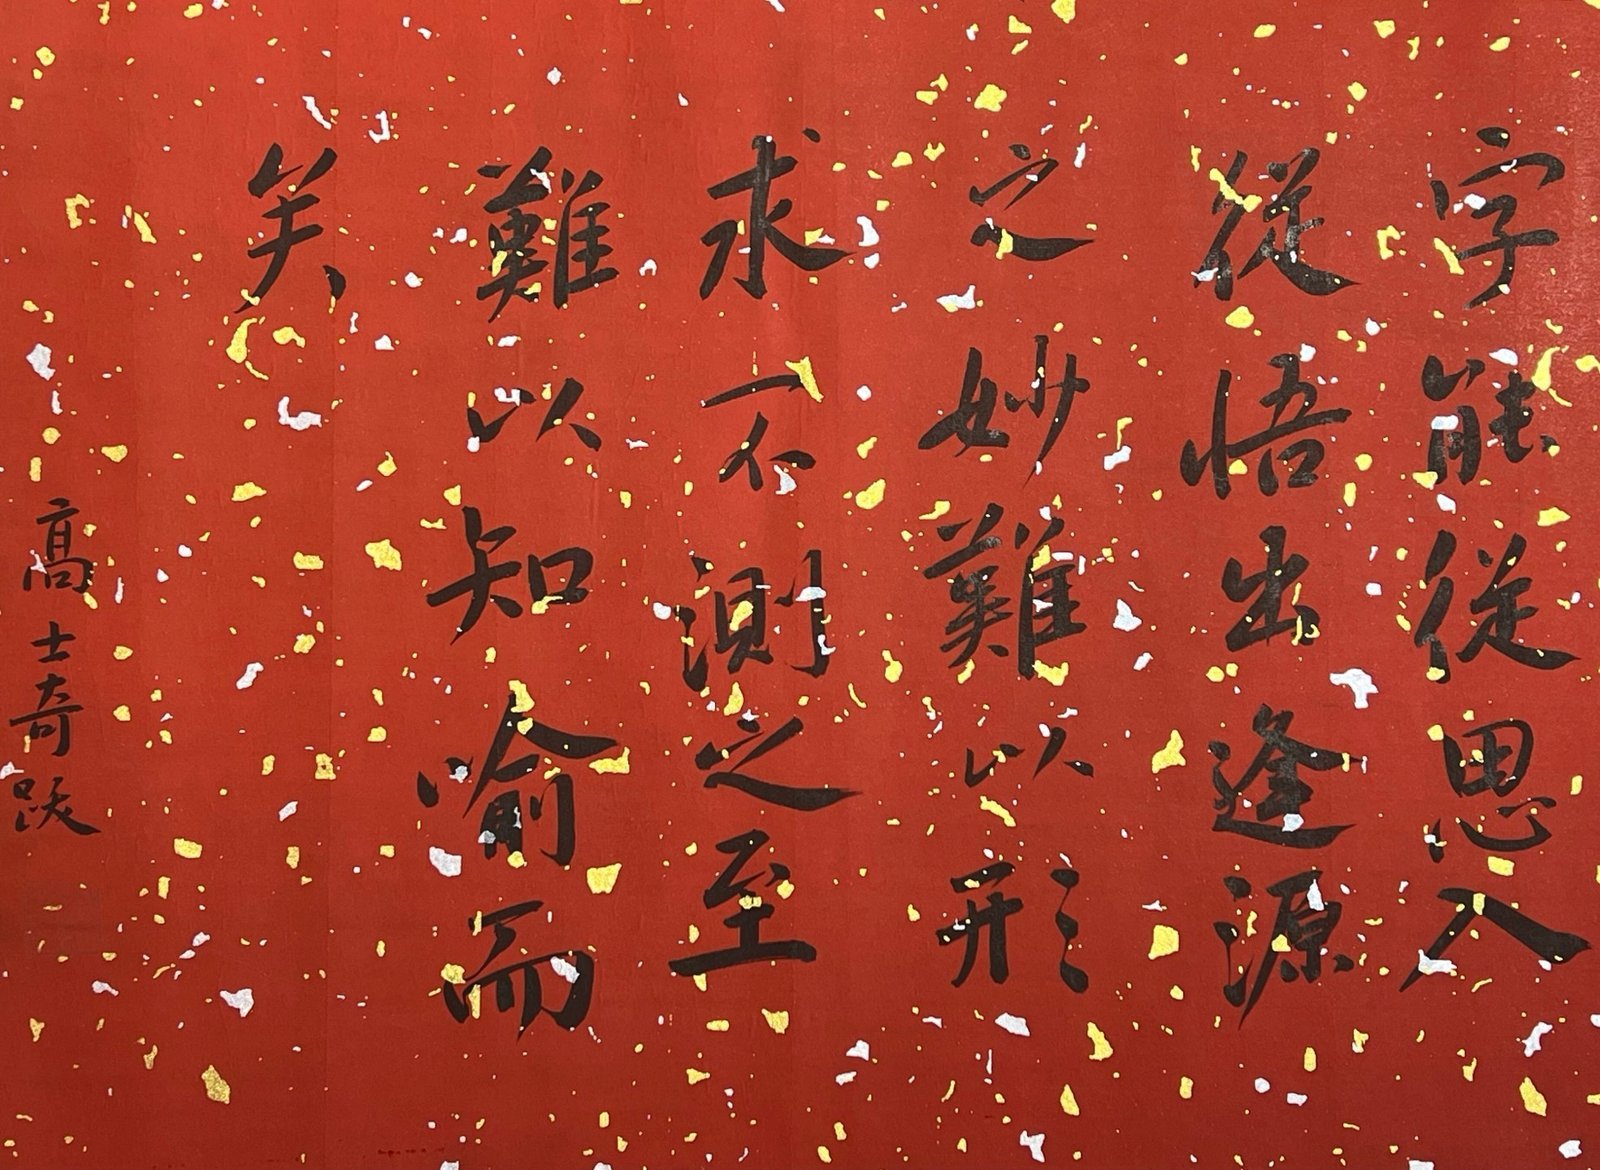 字能從思入
從悟出逢源
之妙難以形
求不測之至
難以知喻而
矣
高士奇跋